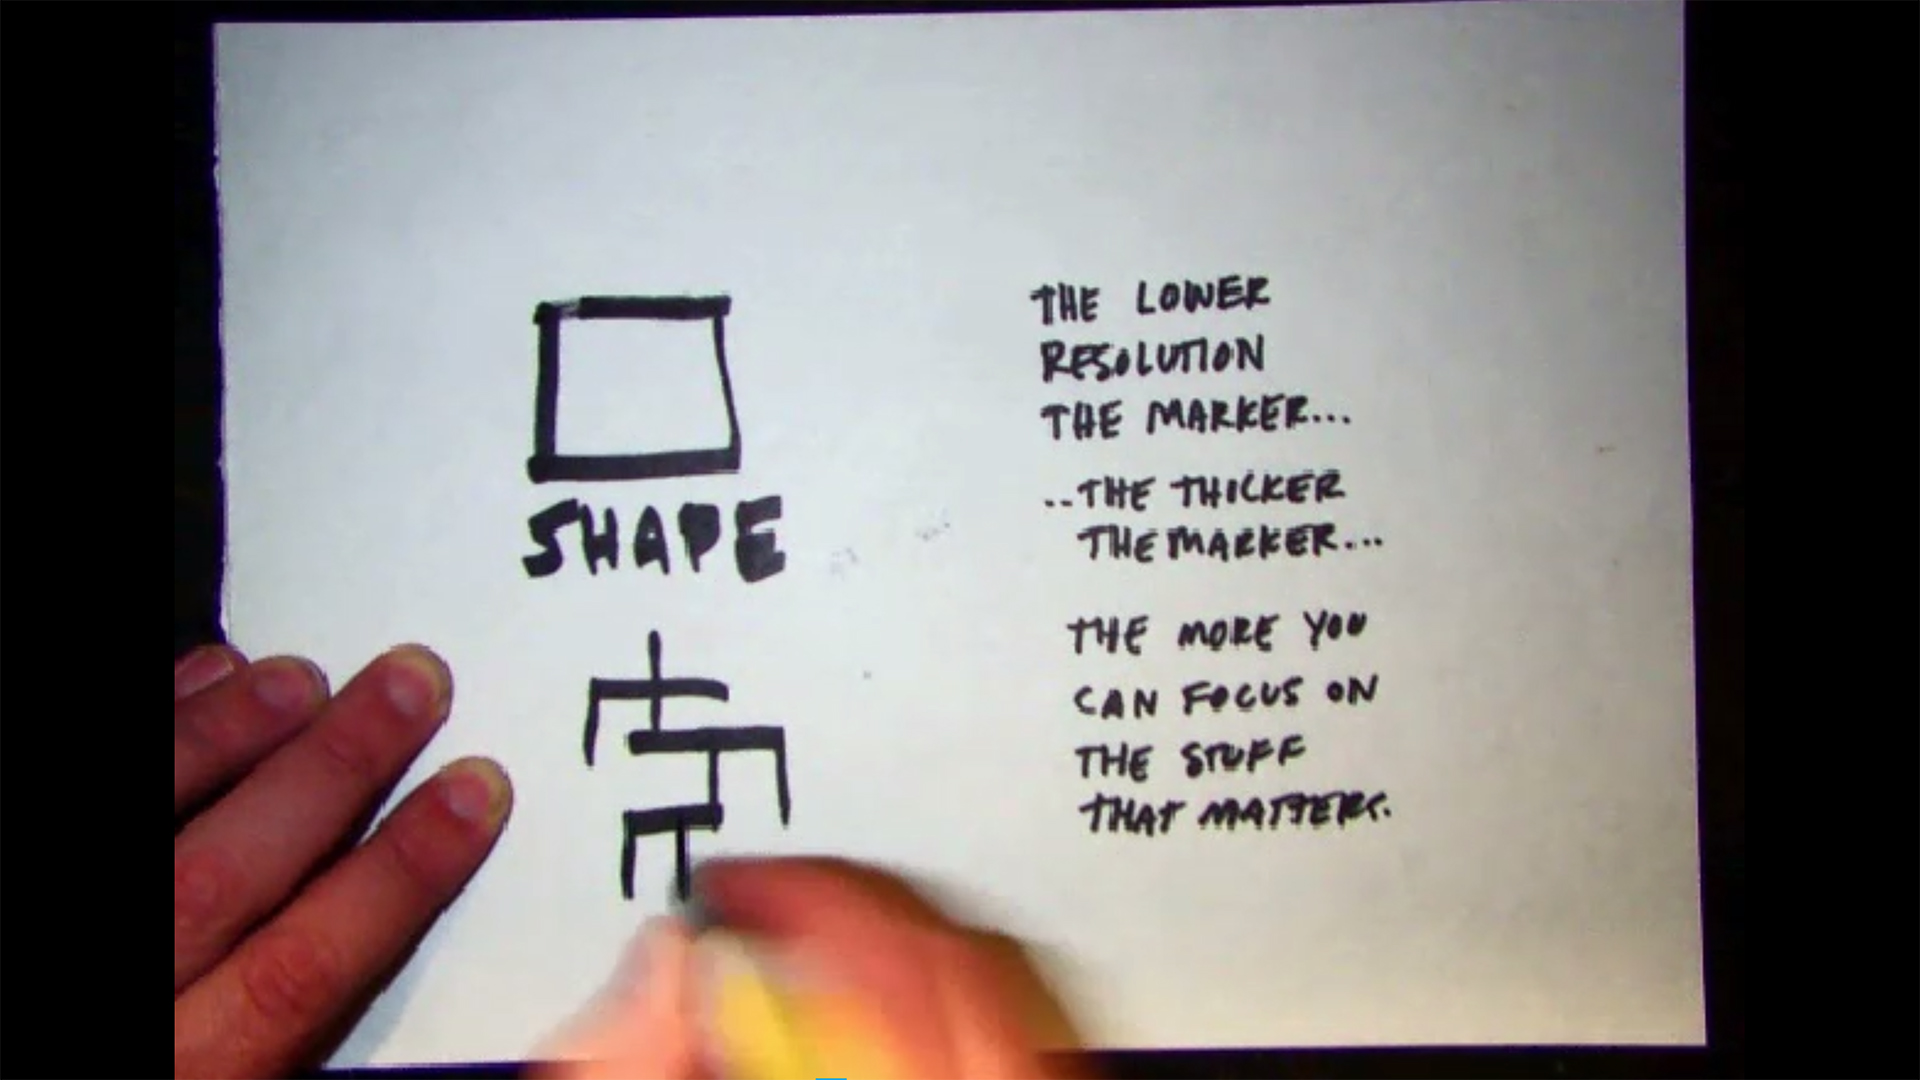 SHAPE
THE LOWER
RESOLUTION
THE MARKER...
..THE THICKER
THE MARKER...
THE MORE YOU
CAN FOCUS ON
THE STUFF
THAT MATTERS.